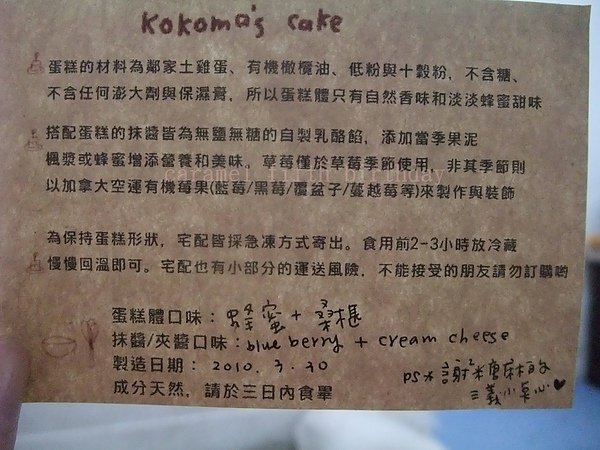 Kokoma's cake
蛋糕的材料為鄰家土雞蛋、有機橄欖油、低粉與十穀粉，不含糖、
不含任何澎大劑與保濕膏，所以蛋糕體只有自然香味和淡淡蜂蜜甜味
搭配蛋糕的抹醬皆為無鹽無糖的自製乳酪餡，添加當季果泥
楓漿或蜂蜜增添營養和美味。草莓僅於草莓季節使用，非其季節則
caramel fifth birthday
以加拿大空運有機莓果(藍莓/黑莓/覆盆子/蔓越莓等)來製作與裝飾
為保持蛋糕形狀，宅配皆採急凍方式寄出。食用前2-3小時放冷藏
慢慢回溫即可。宅配也有小部分的運送風險，不能接受的朋友請勿訂購喲
蛋糕體口味：蜂蜜+桑椹
抹醬/夾醬口味：blueberry + cream cheese
製造日期：2010.3.30
成分天然，請於三日內食畢
PS* 謝謝糖麻的
三義小點心♥